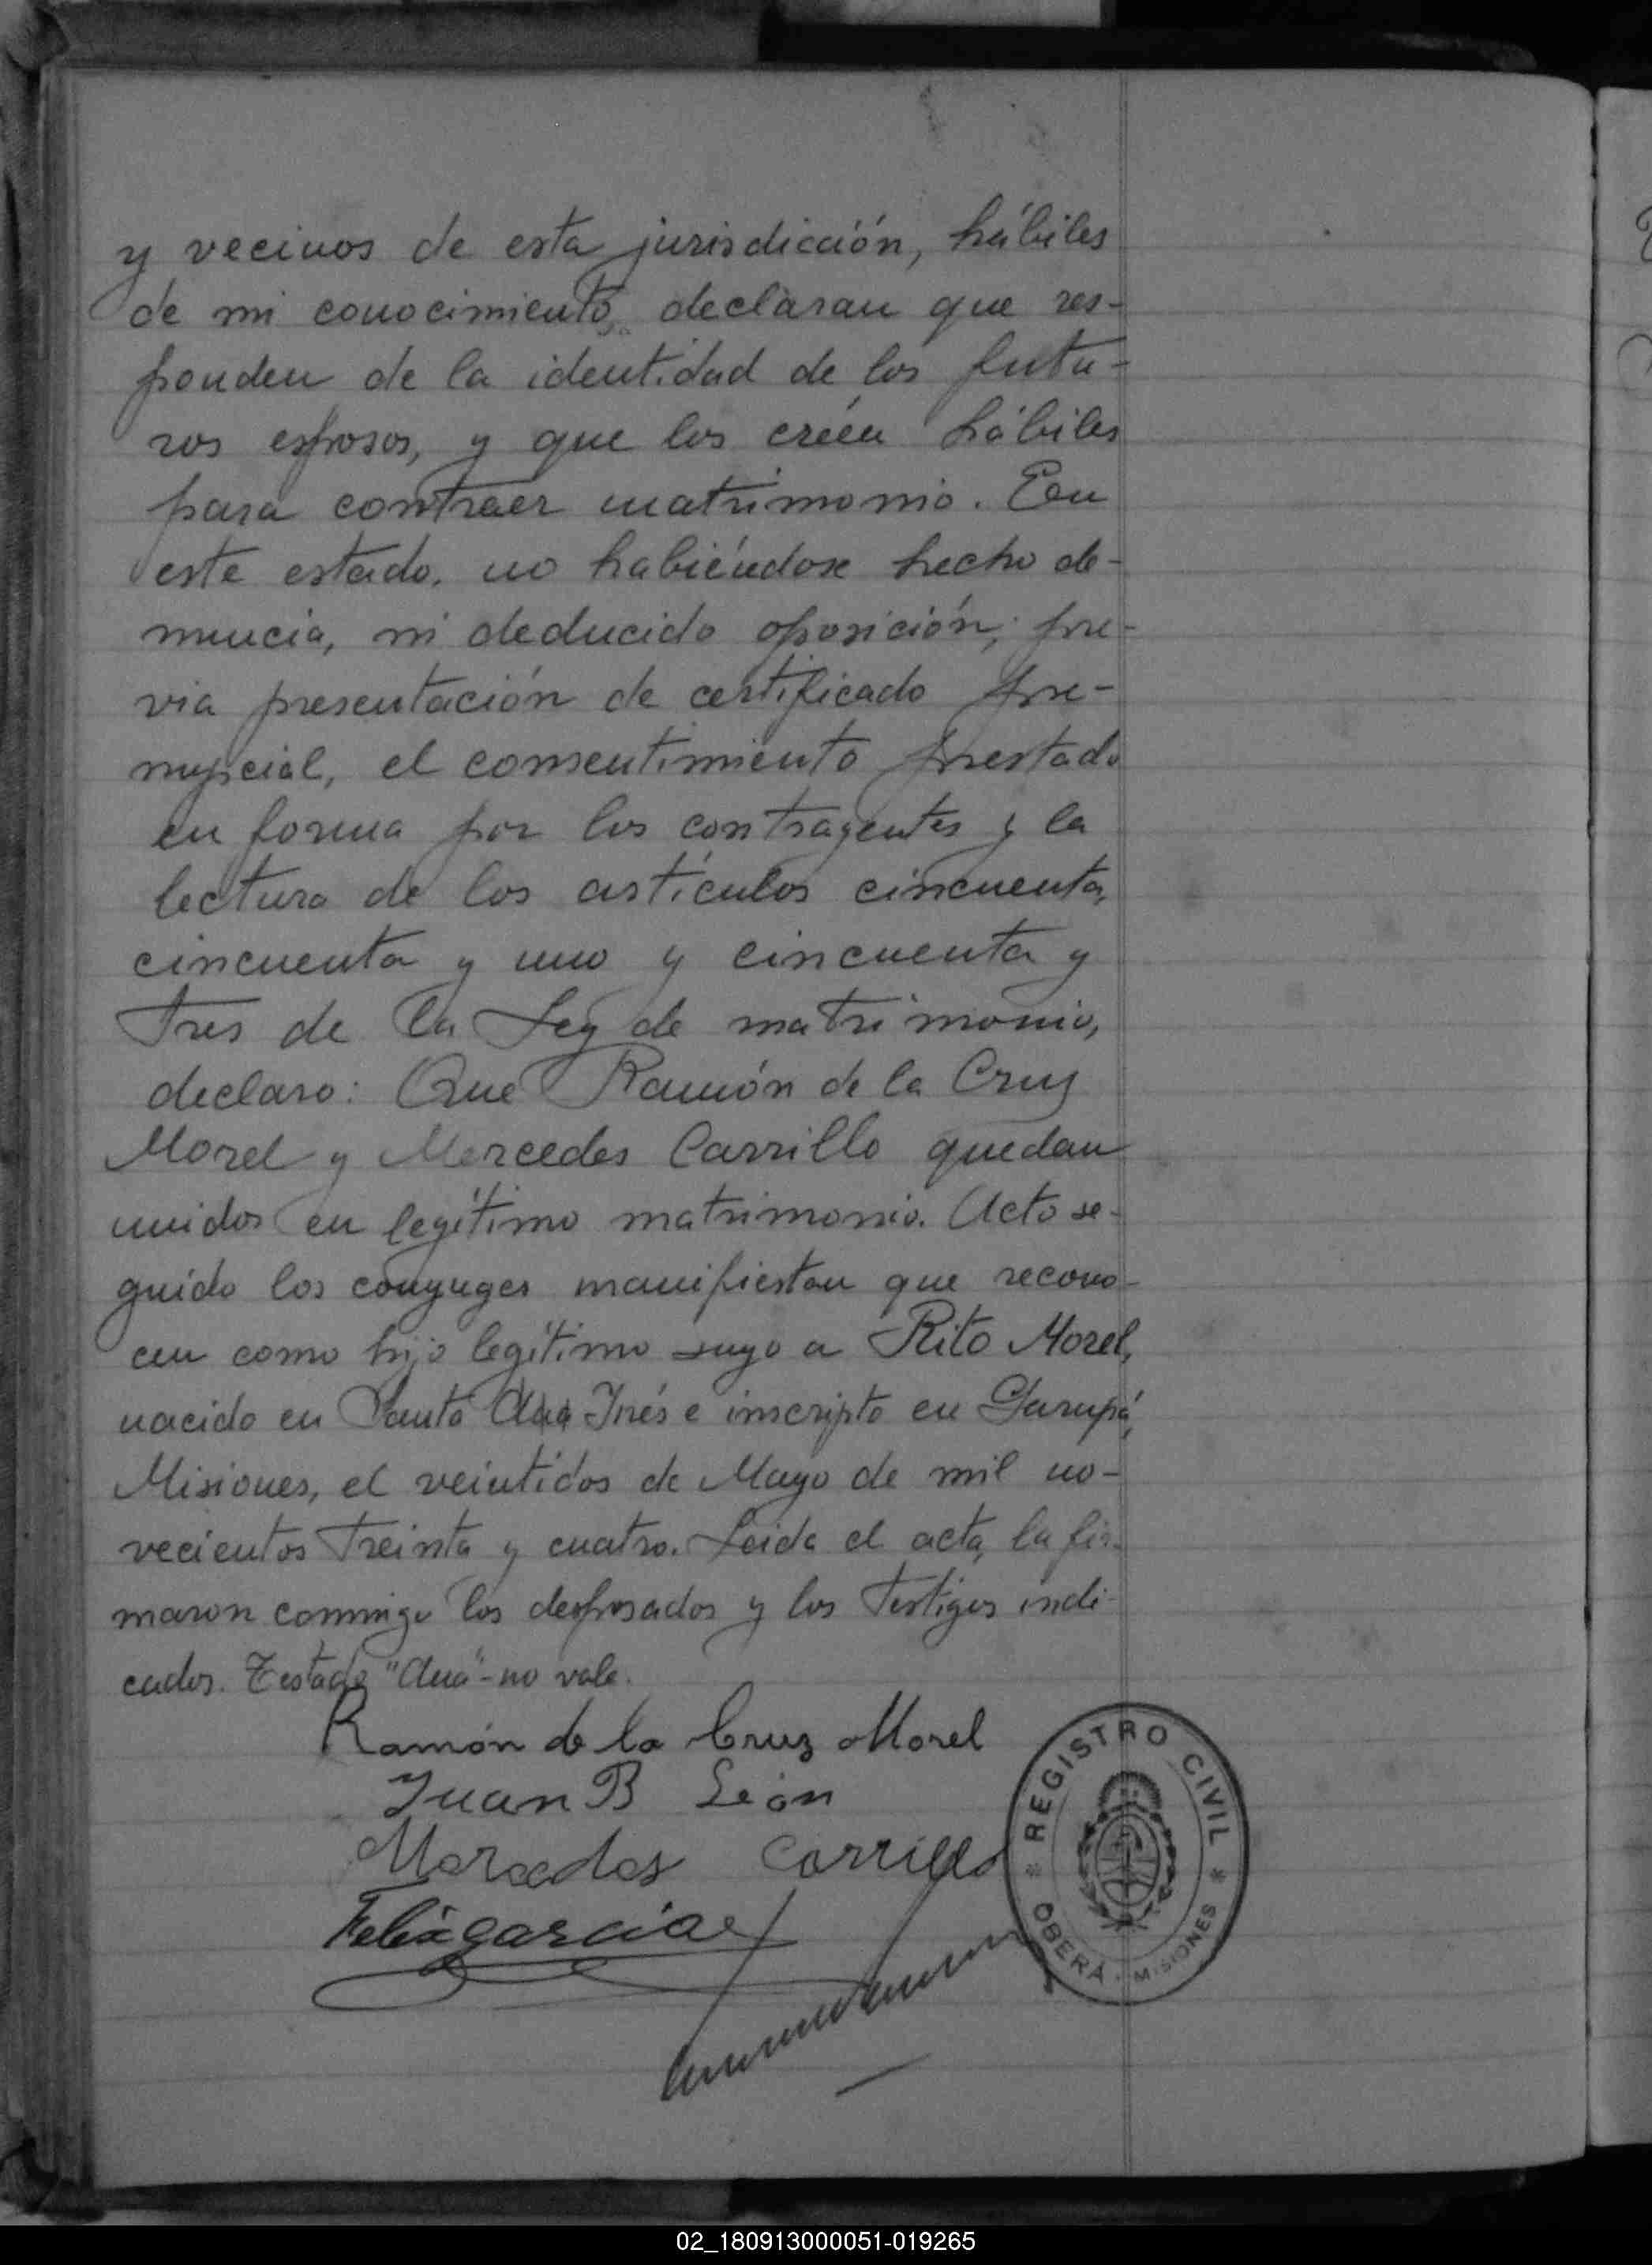 y vecinos de esta jurisdicción, hábiles
de mi conocimiento, declaran que res-
ponden de la identidad de los futu-
ros esposos, y que los créen hábiles
para contraer matrimonio. En
este estado, no habiéndose hecho de-
nuncia, ni deducido oposición; pre-
via presentación de certificado pre-
nupcial, el consentimiento prestado
en forma por los contrayentes y la
lectura de los artículos cincuenta,
cincuenta y uno y cincuenta y
tres de la Ley de matrimonio,
declaro: Que Ramón de la Cruz
Morel y Mercedes Carrillo quedan
unidos en legítimo matrimonio. Acto se-
guido los cónyuges manifiestan que recono-
cen como hijo legítimo suyo a Rito Morel,
nacido en Santa Ana Inés e inscripto en Garupá,
Misiones, el veintidos de Mayo de mil no-
vecientos treinta y cuatro. Leida el acta, la fir-
maron conmigo los desposados y los testigos indi-
cados. Testado "Ana"-no vale.
Ramón de la Cruz Morel
Juan B León
Mercedes Carrillo
Felix Garcia
REGISTRO CIVIL
OBERÁ - MISIONES
02_180913000051-019265